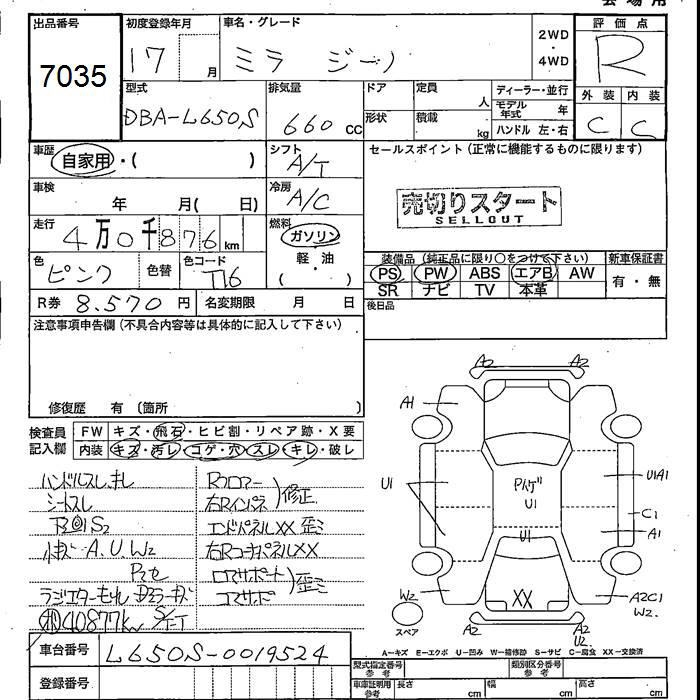 出品番号
7035
初度登録年月
17 月
車名・グレード
ミラ ジーノ
2WD
・
4WD
評価点
R
型式
DBA-L650S
排気量
660 CC
ドア
形状
定員 人
積載 kg
ディーラー・並行
モデル年式 年
ハンドル 左・右
外装 内装
C C
車歴
自家用・( )
シフト
A/T
セールスポイント(正常に機能するものに限ります)
車検
年 月( 日)
冷房
A/C
売切りスタート
SELLOUT
走行
4万0千876 km
燃料
ガソリン
軽・油
( )
色
ピンク
色替
色コード
T16
装備品(純正品に限り○をつけて下さい)
PS PW ABS エアB AW
SR ナビ TV 本革
新車保証書
有・無
R券 8.570 円
名変期限 月 日
後日品
注意事項申告欄(不具合内容等は具体的に記入して下さい)
修復歴 有 〔箇所 〕
検査員
記入欄
FW キズ・飛石・ヒビ割・リペア跡・X要
内装 キズ・汚レ・コゲ・穴・スレ・キレ・破レ
ハンドルスレ.キレ
シートスレ
小キズ A.U.W2
40877km
Rフロアー
右Rインパネ
修正
エンドパネルXX 歪ミ
右RコーナーパネルXX
歪ミ
A2 A2
A1
U1
Pハゲ
U1
U1
U1A1
C1
A1
W2
XX
A2C1
W2.
A2
A2
U2.
スペア
A-キズ E-エクボ U-凹み W-補修跡 S-サビ C-腐食 XX-交換済
車台番号 L650S-0019524
登録番号
型式指定番号
参考
類別区分番号
参考
車庫証明用
参考
長さ cm
幅 cm
高さ cm